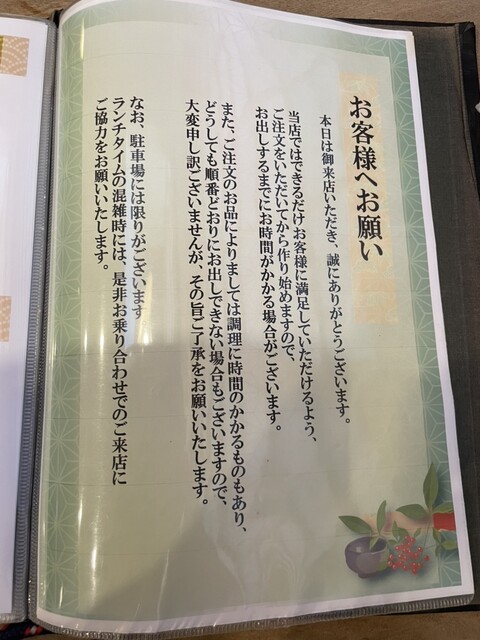 お客様へお願い
本日は御来店いただき、誠にありがとうございます。
当店ではできるだけお客様に満足していただけるよう、
ご注文をいただいてから作り始めますので、
お出しするまでにお時間がかかる場合がございます。
また、ご注文のお品によりましては調理に時間のかかるものもあり、
どうしても順番どおりにお出しできない場合もございますので、
大変申し訳ございませんが、その旨ご了承をお願いいたします。
なお、駐車場には限りがございます
ランチタイムの混雑時には、是非お乗り合わせでのご来店に
ご協力をお願いいたします。